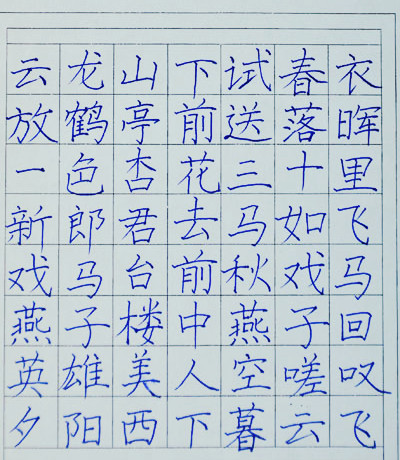 云龙山下试春衣
放鹤亭前送落晖
一色杏花三十里
新郎君去马如飞
戏马台前秋戏马
燕子楼中燕子回
英雄美人空嗟叹
夕阳西下暮云飞